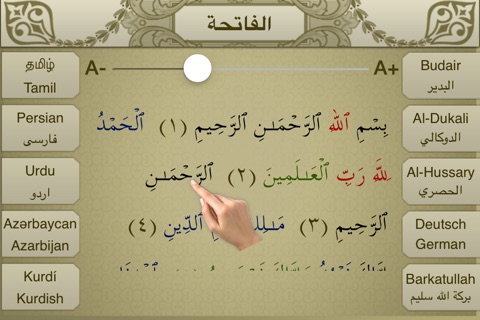 الفاتحة
தமிழ்
Tamil
Persian
فارسی
Urdu
اردو
Azərbaycan
Azarbijan
Kurdí
Kurdish
A-
A+
بِسْمِ ٱللَّهِ ٱلرَّحْمَـٰنِ ٱلرَّحِيمِ (١) ٱلْحَمْدُ
لِلَّهِ رَبِّ ٱلْعَـٰلَمِينَ (٢) ٱلرَّحْمَـٰنِ
ٱلرَّحِيمِ (٣) مَـٰلِكِ يَوْمِ ٱلدِّينِ (٤)
Budair
البدير
Al-Dukali
الدوكالي
Al-Hussary
الحصري
Deutsch
German
Barkatullah
بركة الله سليم